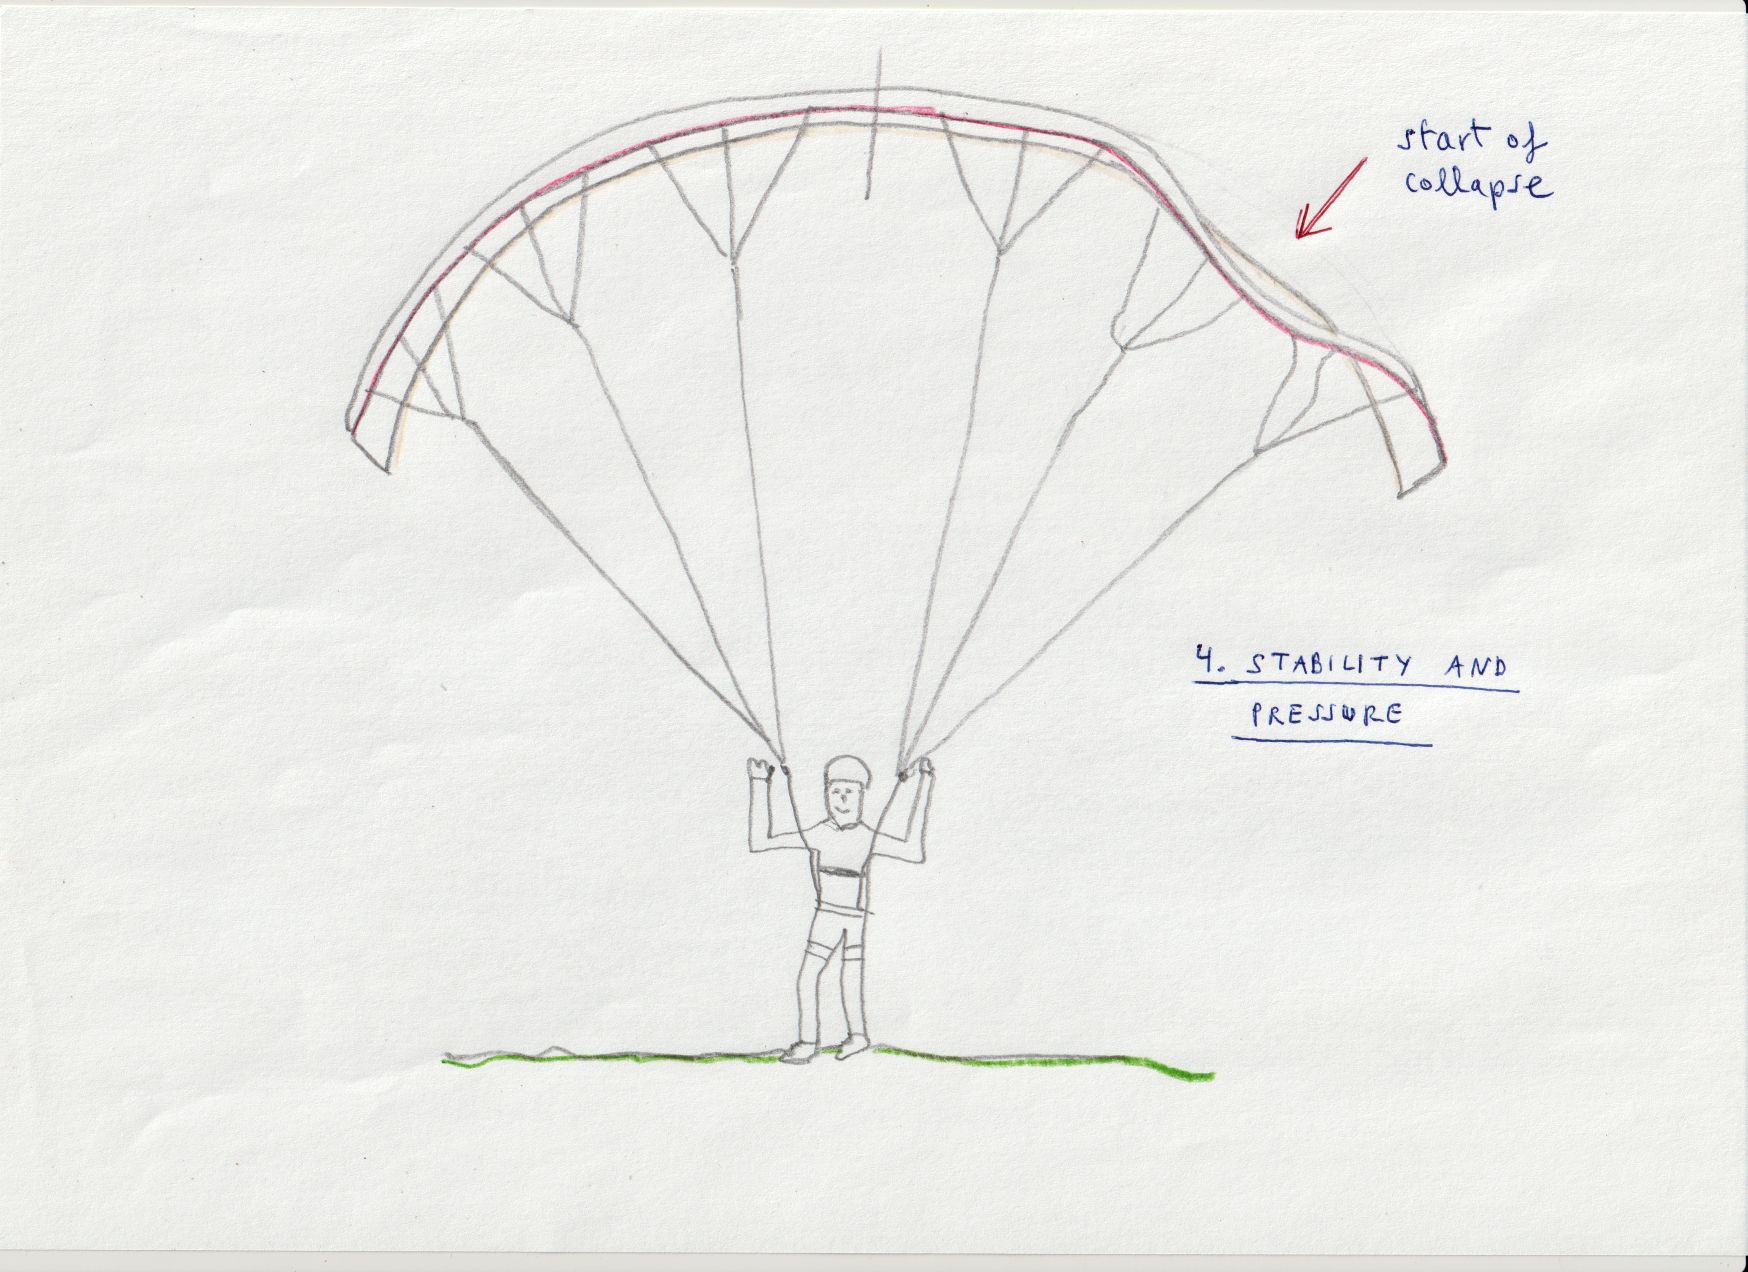 start of
collapse
4. STABILITY AND
PRESSURE